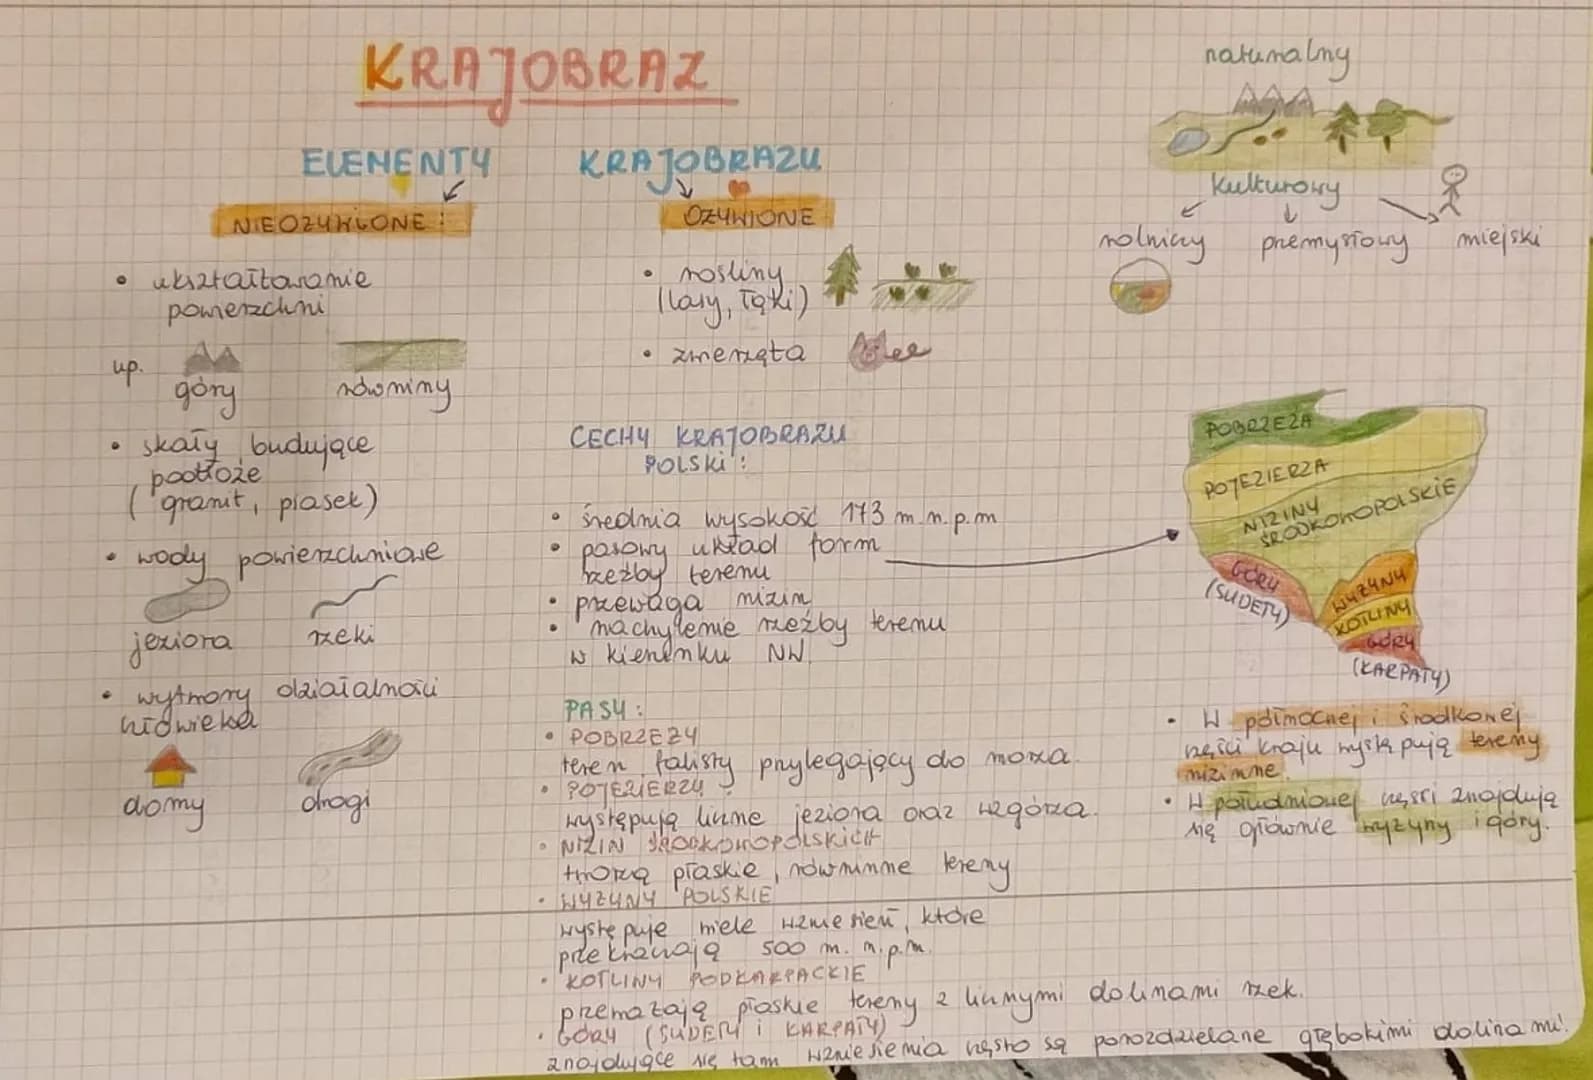 KRAJOBRAZ
ELEMENTY KRAJOBRAZU
NIEOŻYWIONE:
• ukształtowanie
powierzchni
np.
góry równiny
• skały budujące
podłoże
(granit, piasek)
• wody powierzchniowe
jeziora rzeki
• wytwory działalności
człowieka
domy drogi
OŻYWIONE
• rośliny
(lasy, łąki)
• zwierzęta
naturalny
kulturowy
rolniczy przemysłowy miejski
CECHY KRAJOBRAZU
POLSKI:
• średnia wysokość 173 m.n.p.m
• pasowy układ form
rzeźby terenu
• przewaga nizin
• nachylenie rzeźby terenu
w kierunku NW.
POBRZEŻA
POJEZIERZA
NIZINY
ŚRODKOWOPOLSKIE
GÓRY
(SUDETY)
WYŻYNY
KOTLINY
GÓRY
(KARPATY)
PASY:
• POBRZEŻY
teren falisty przylegający do morza.
• POJEZIERZY
występują liczne jeziora oraz wzgórza.
• NIZIN ŚRODKOWOPOLSKICH
tworzą płaskie, równinne tereny
• WYŻYNY POLSKIE
występuje wiele wzniesień, które
przekraczają 500 m. n.p.m.
• KOTLINY PODKARPACKIE
przeważają płaskie tereny z licznymi dolinami rzek.
• GÓRY (SUDETY i KARPATY)
znajdujące się tam wzniesienia często są porozdzielane głębokimi dolinami.
• W północnej i środkowej
części kraju występują tereny
nizinne.
• W południowej części znajdują
się głównie wyżyny i góry.